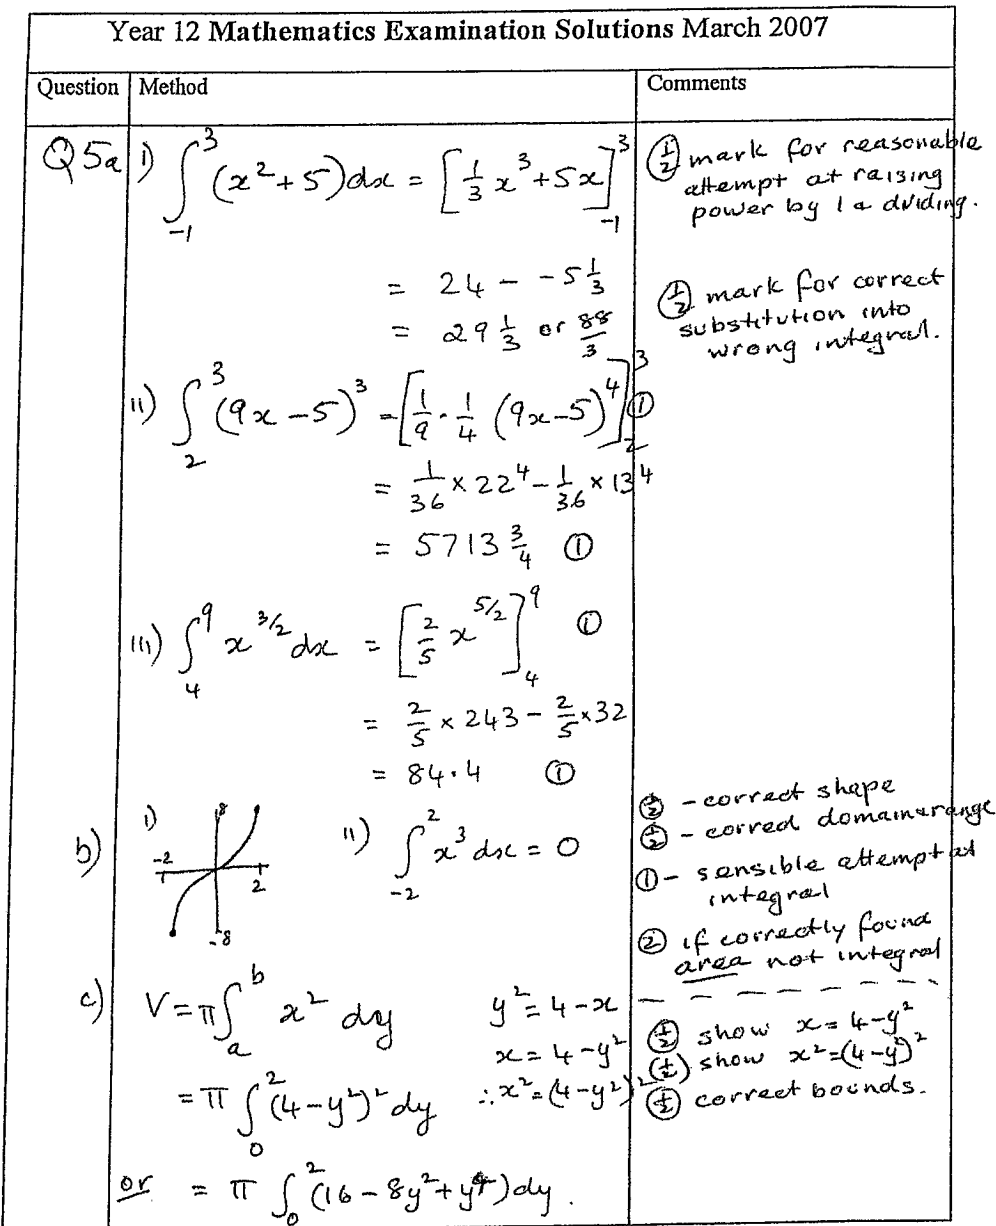 Year 12 Mathematics Examination Solutions March 2007
Question Method Comments
Q5a i) ∫₋₁³ (x²+5)dx = [⅓x³+5x]₋₁³
½ mark for reasonable
attempt at raising
power by 1 & dividing.
= 24 - -5⅓
= 29⅓ or 88/3
½ mark for correct
substitution into
wrong integral.
ii) ∫₂³ (9x-5)³ = [1/9 · 1/4 (9x-5)⁴]₂³ ①
= 1/36 × 22⁴ - 1/36 × 13⁴
= 5713¾ ①
iii) ∫₄⁹ x^(3/2) dx = [2/5 x^(5/2)]₄⁹ ①
= 2/5 × 243 - 2/5 × 32
= 84.4 ①
b) i) 8 -2 2 -8
ii) ∫₋₂² x³ dx = 0
½ - correct shape
½ - correct domain & range
① - sensible attempt at
integral
② if correctly found
area not integral
c) V = π∫ₐᵇ x² dy y² = 4-x
x = 4-y²
= π∫₀² (4-y²)² dy ∴ x² = (4-y²)²
½ show x = 4-y²
½ show x² = (4-y²)²
½ correct bounds.
or = π∫₀² (16-8y²+y⁴)dy.